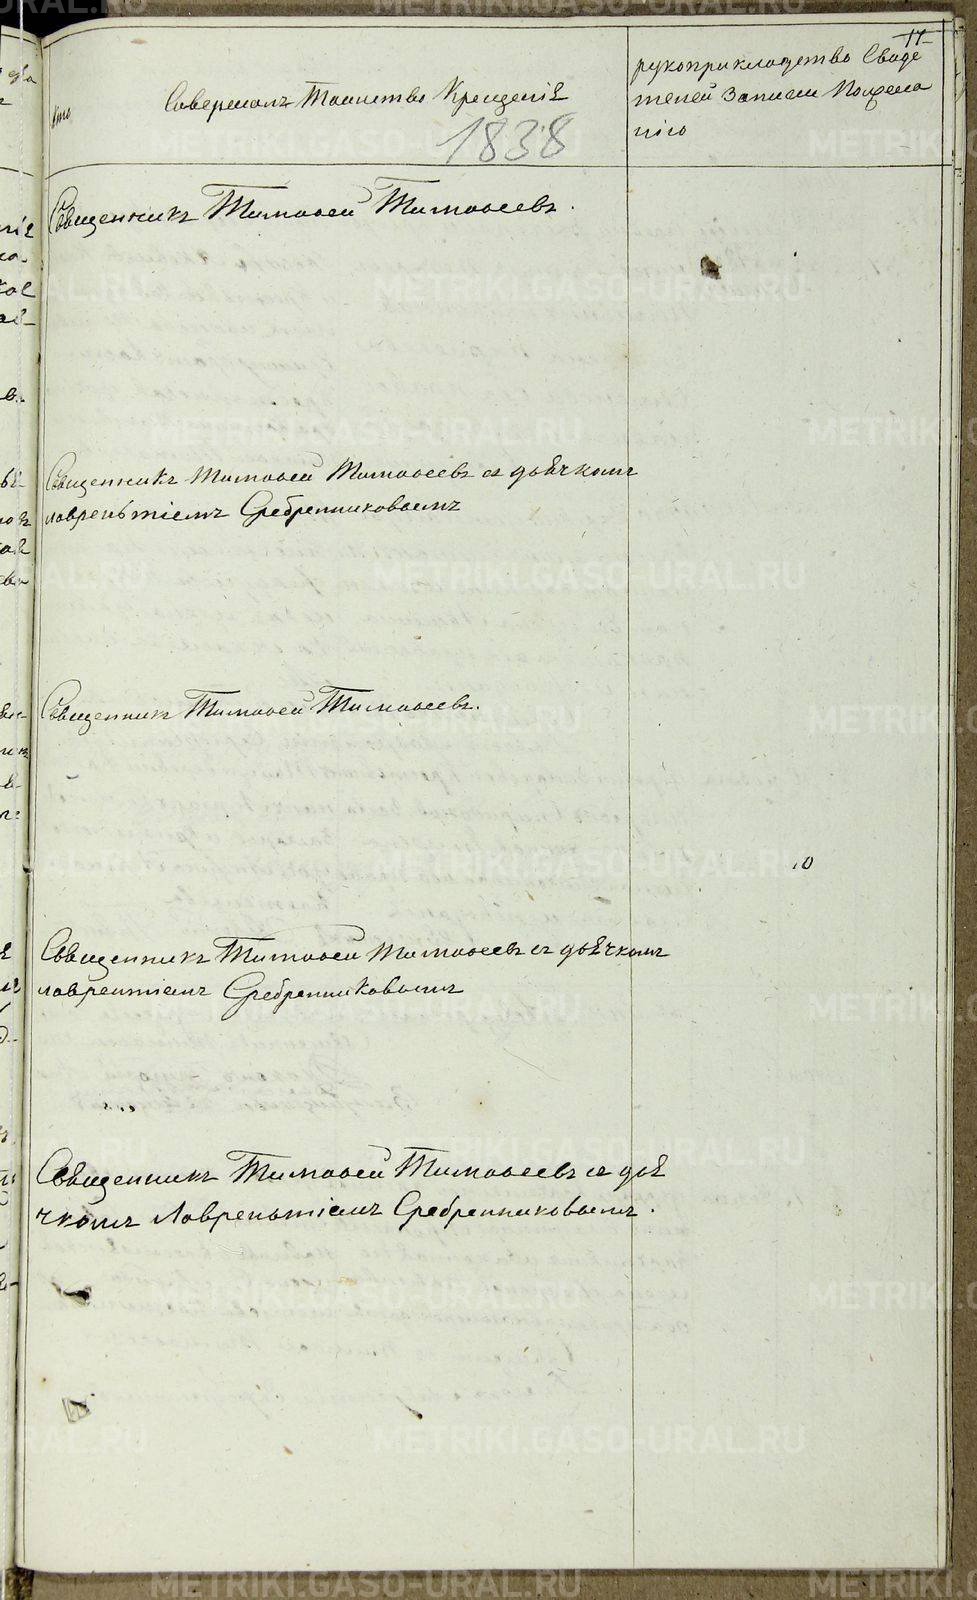 11
Кто Совершалъ Таинство Крещенiѣ
рукоприкладство Свиде
телей Записки Пожела
нiю
1838
Священникъ Тимофей Тимофеевъ.
Священникъ Тимофей Тимофеевъ съ дьѣчкомъ
лаврентьiемъ Сребренниковымъ
Священникъ Тимофей Тимофеевъ.
10
Священникъ Тимофей Тимофеевъ съ дьѣчкомъ
лаврентiемъ Сребренниковымъ
Священникъ Тимофей Тимофеевъ съ дьѣ
чкомъ Лаврентьiемъ Сребренниковымъ.
METRIKI.GASO-URAL.RU